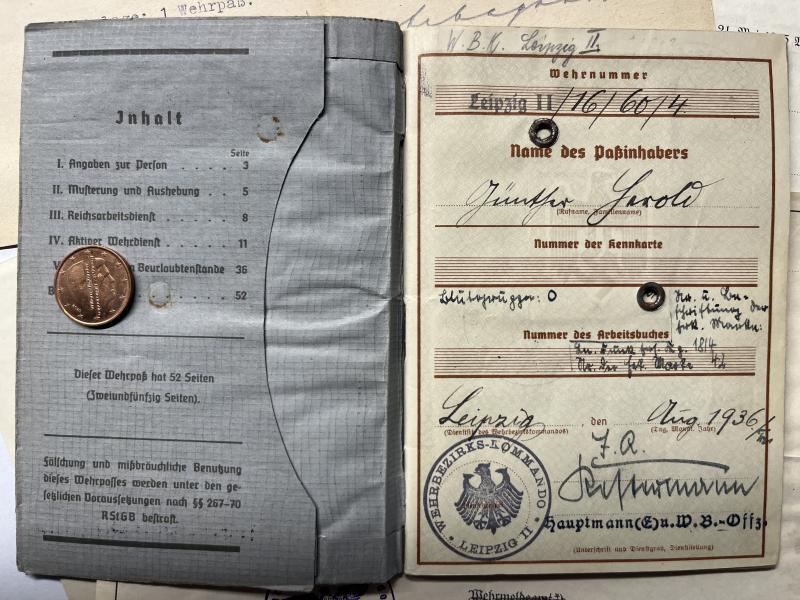 1 Wehrpaß.
Inhalt
Seite
I. Angaben zur Person . . . . . 3
II. Musterung und Aushebung . . 5
III. Reichsarbeitsdienst . . . . . 8
IV. Aktiver Wehrdienst . . . . . 11
Beurlaubtenstande 36
52
Dieser Wehrpaß hat 52 Seiten
(Zweiundfünfzig Seiten).
Fälschung und mißbräuchliche Benutzung
dieses Wehrpasses werden unter den ge-
setzlichen Voraussetzungen nach §§ 267-70
RStGB bestraft.
W.B.K. Leipzig II.
Wehrnummer
Leipzig II/16/60/4
Name des Paßinhabers
Günther Herold
(Rufname, Familienname)
Nummer der Kennkarte
Blutgruppe: O
Nr. u. Be-
schriftung der
Erk. Marke:
Nummer des Arbeitsbuches
Ln. Funk 1814
Nr. der Erk. Marke 42
Leipzig, den Aug. 1936
(Dienstsitz des Wehrbezirkskommandos) (Tag, Monat, Jahr)
WEHRBEZIRKS-KOMMANDO
LEIPZIG II
Hauptmann(E)u.W.B.-Offz.
(Unterschrift und Dienstgrad, Dienststellung)
Wehrmeldeamt